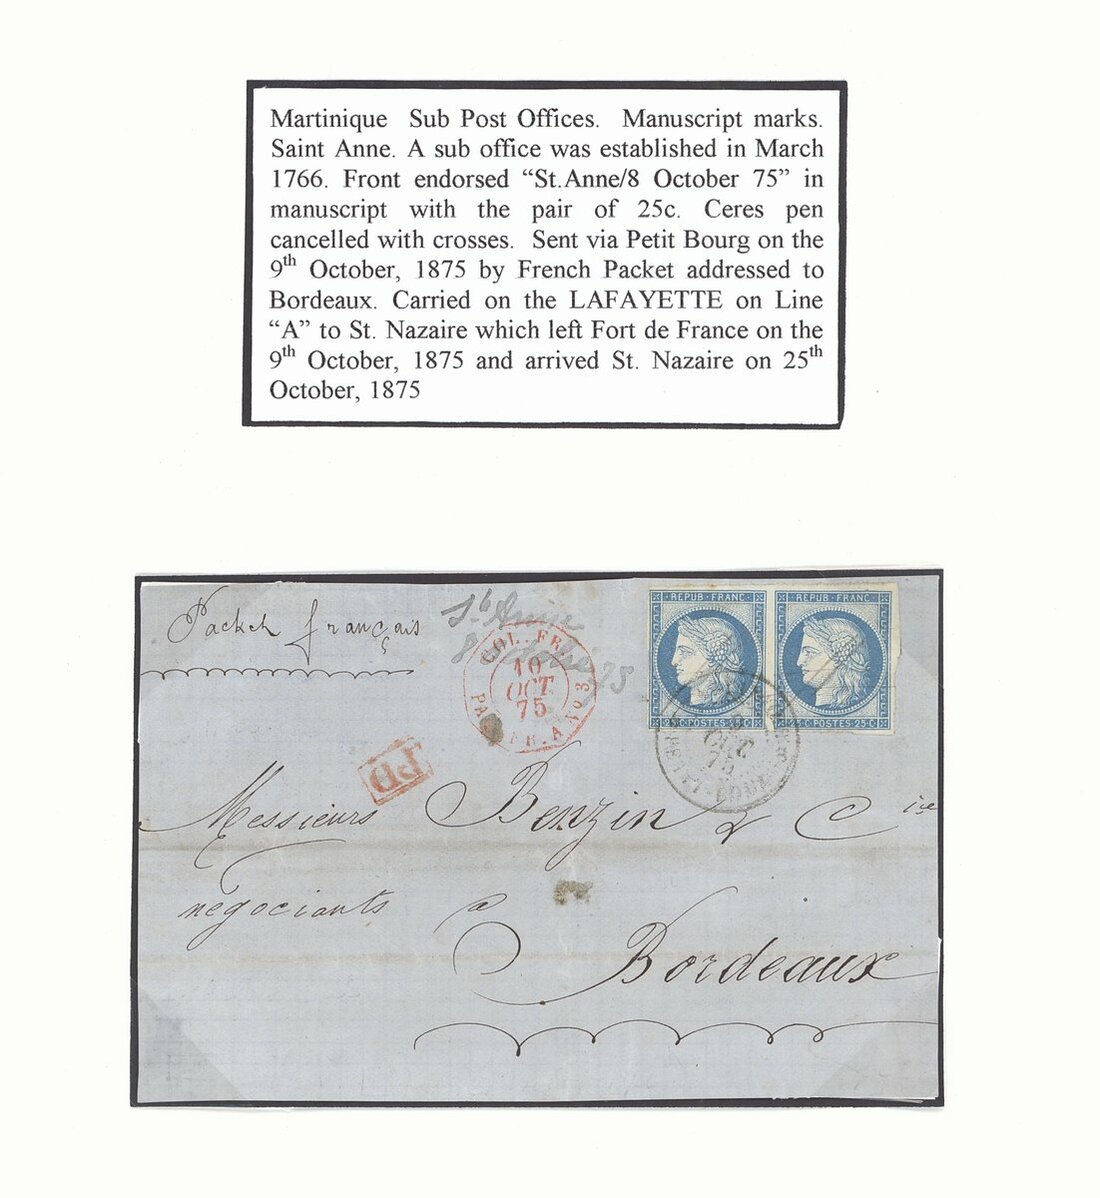 Martinique Sub Post Offices. Manuscript marks.
Saint Anne. A sub office was established in March
1766. Front endorsed “St.Anne/8 October 75” in
manuscript with the pair of 25c. Ceres pen
cancelled with crosses. Sent via Petit Bourg on the
9th October, 1875 by French Packet addressed to
Bordeaux. Carried on the LAFAYETTE on Line
“A” to St. Nazaire which left Fort de France on the
9th October, 1875 and arrived St. Nazaire on 25th
October, 1875
Packet français
St Anne
8 octobre 75
REPUB·FRANC·
REPUB·FRANC·
COL. FR.
10
OCT.
75
PAQ. FR. A No 3
25·C·POSTES·25·C·
25·C·POSTES·25·C·
OCT
75
PETIT-BOURG
PD
Messieurs Benzin & Cie
négociants
a
Bordeaux